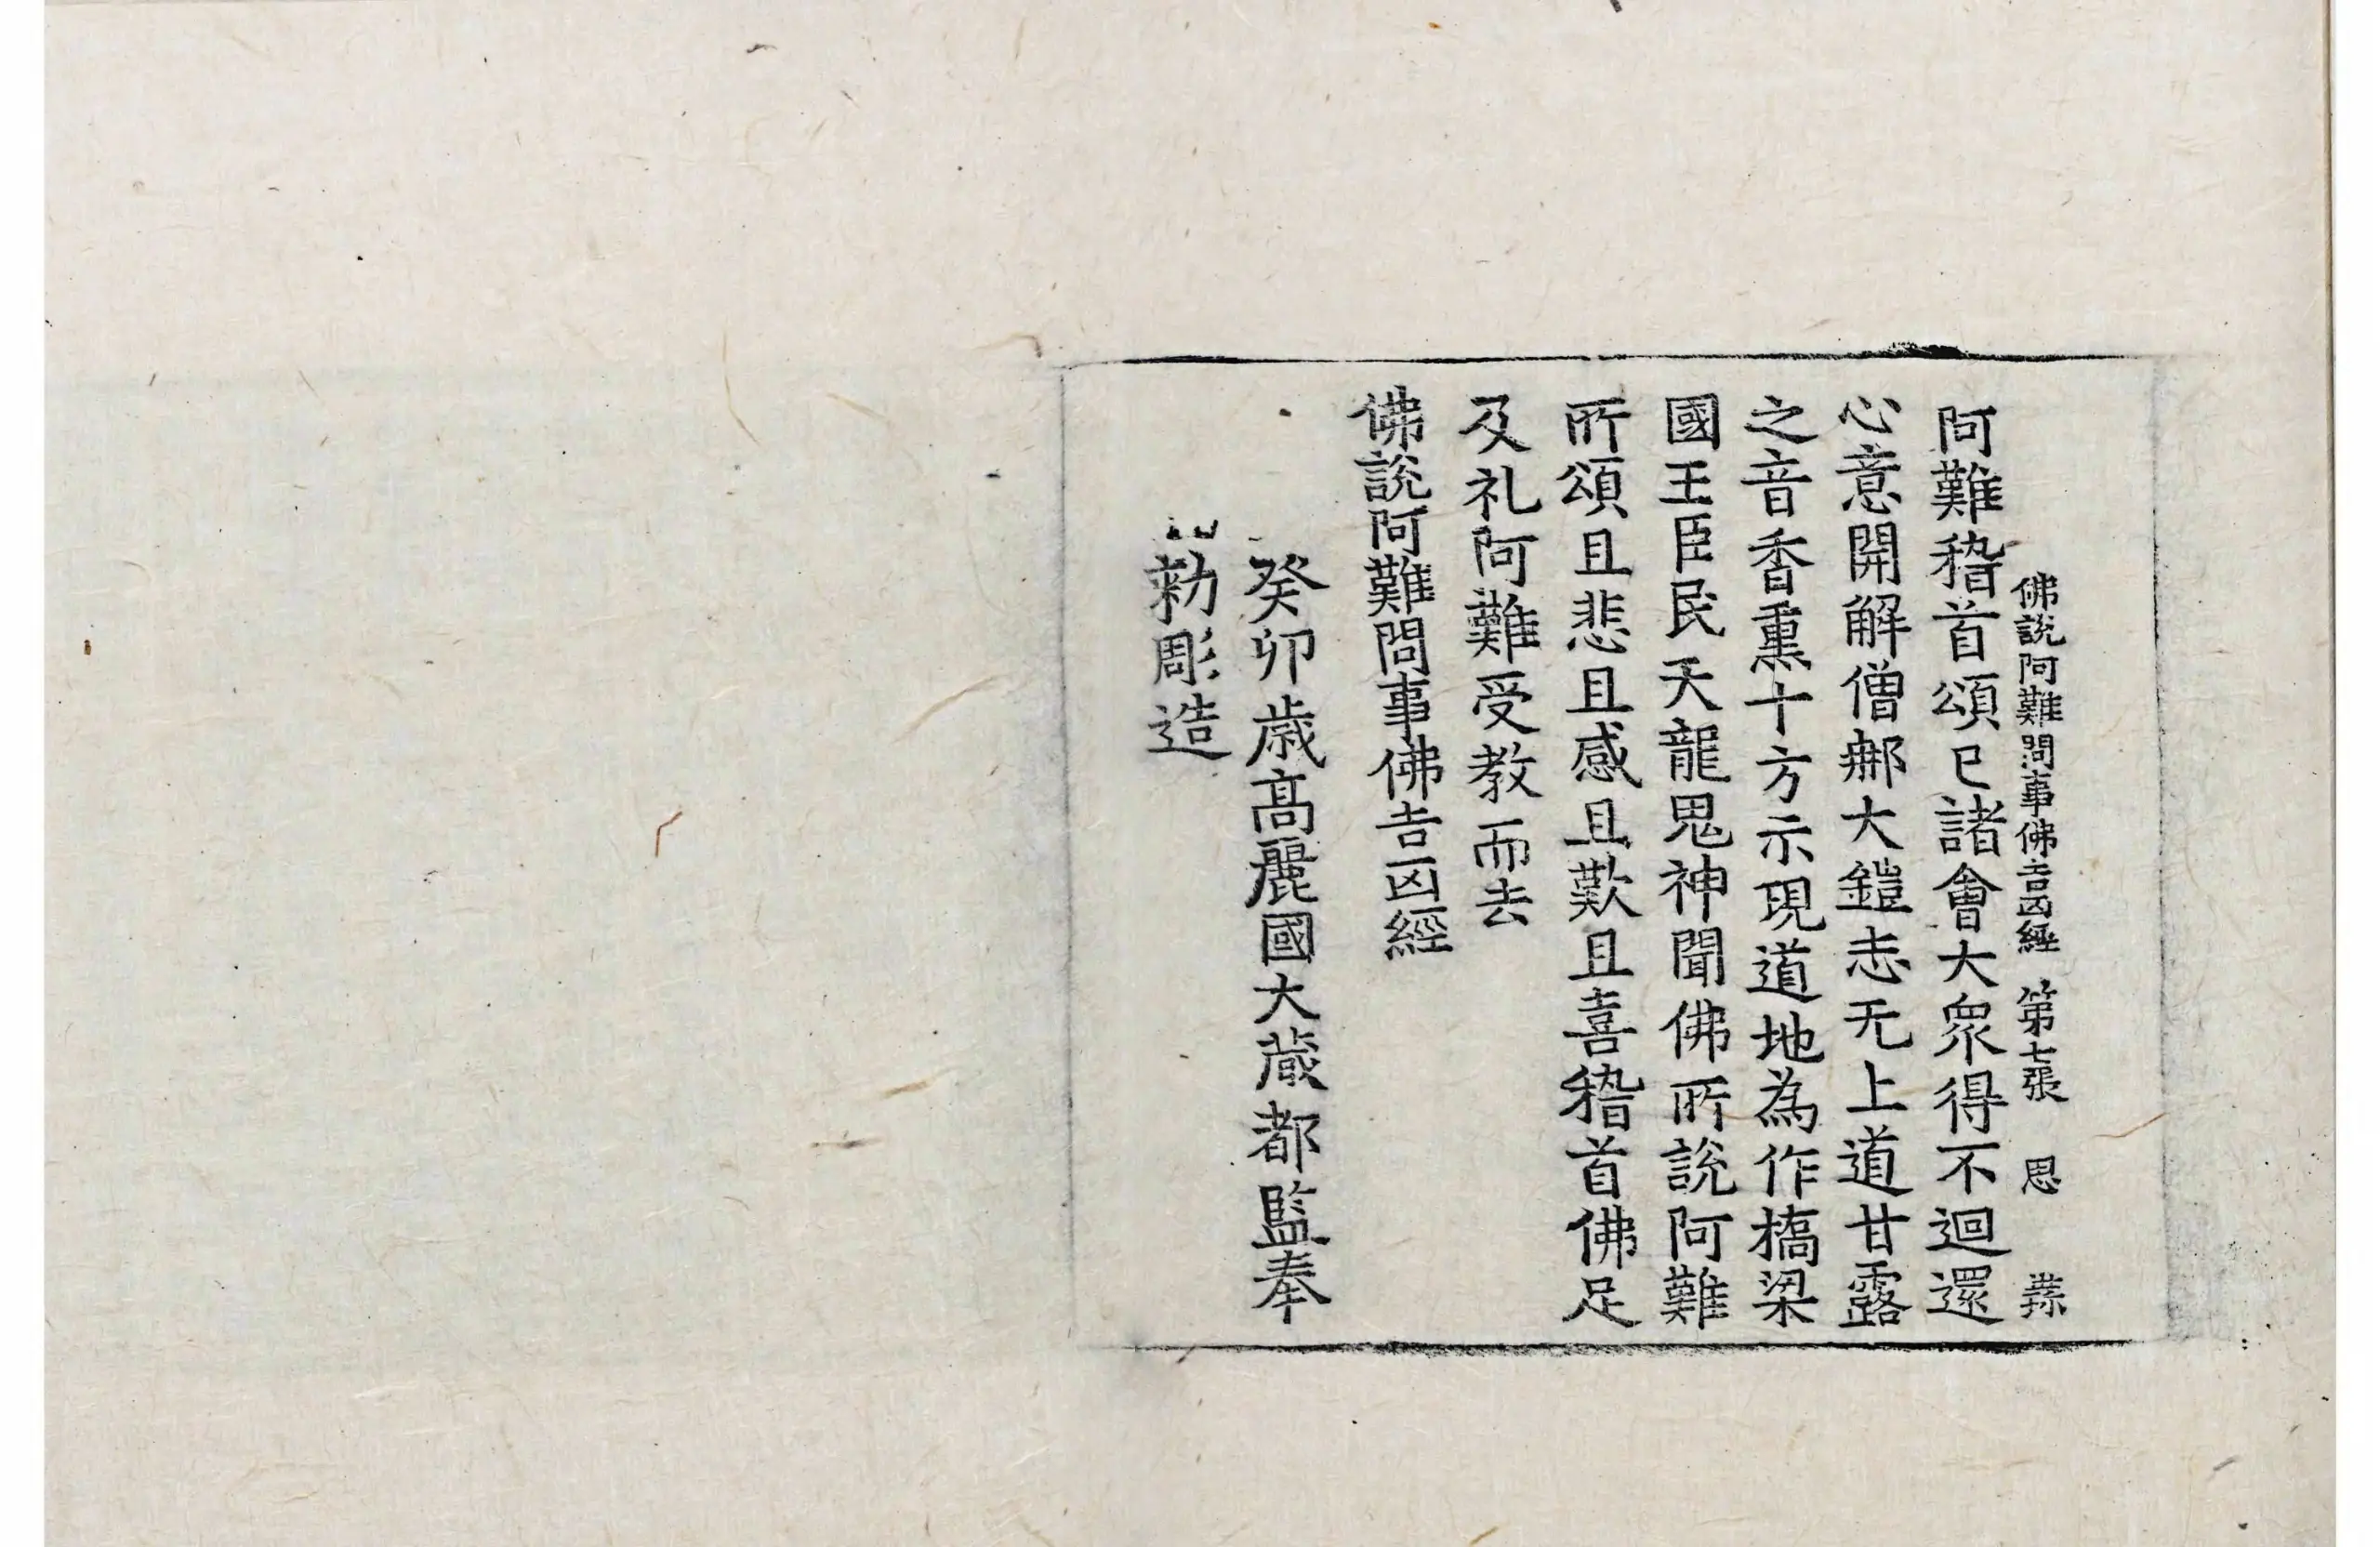 佛說阿難問事佛吉凶經 第七張 思
阿難稽首頌已諸會大衆得不迴還
心意開解僧郍大鎧志无上道甘露
之音香熏十方示現道地為作橋梁
國王臣民天龍鬼神聞佛所說阿難
所頌且悲且感且歎且喜稽首佛足
及礼阿難受教而去
佛說阿難問事佛吉凶經
癸卯歲高麗國大藏都監奉
勑彫造